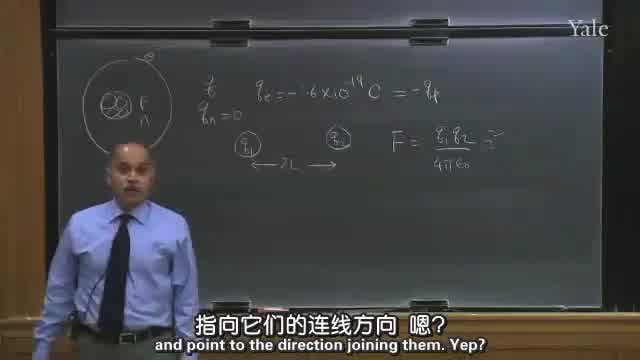 Yale
P
n
q
qe = -1.6×10⁻¹⁹ C = -qp
qn = 0
q1
q2
F = q1q2 / 4πε0
指向它们的连线方向 嗯?
and point to the direction joining them. Yep?